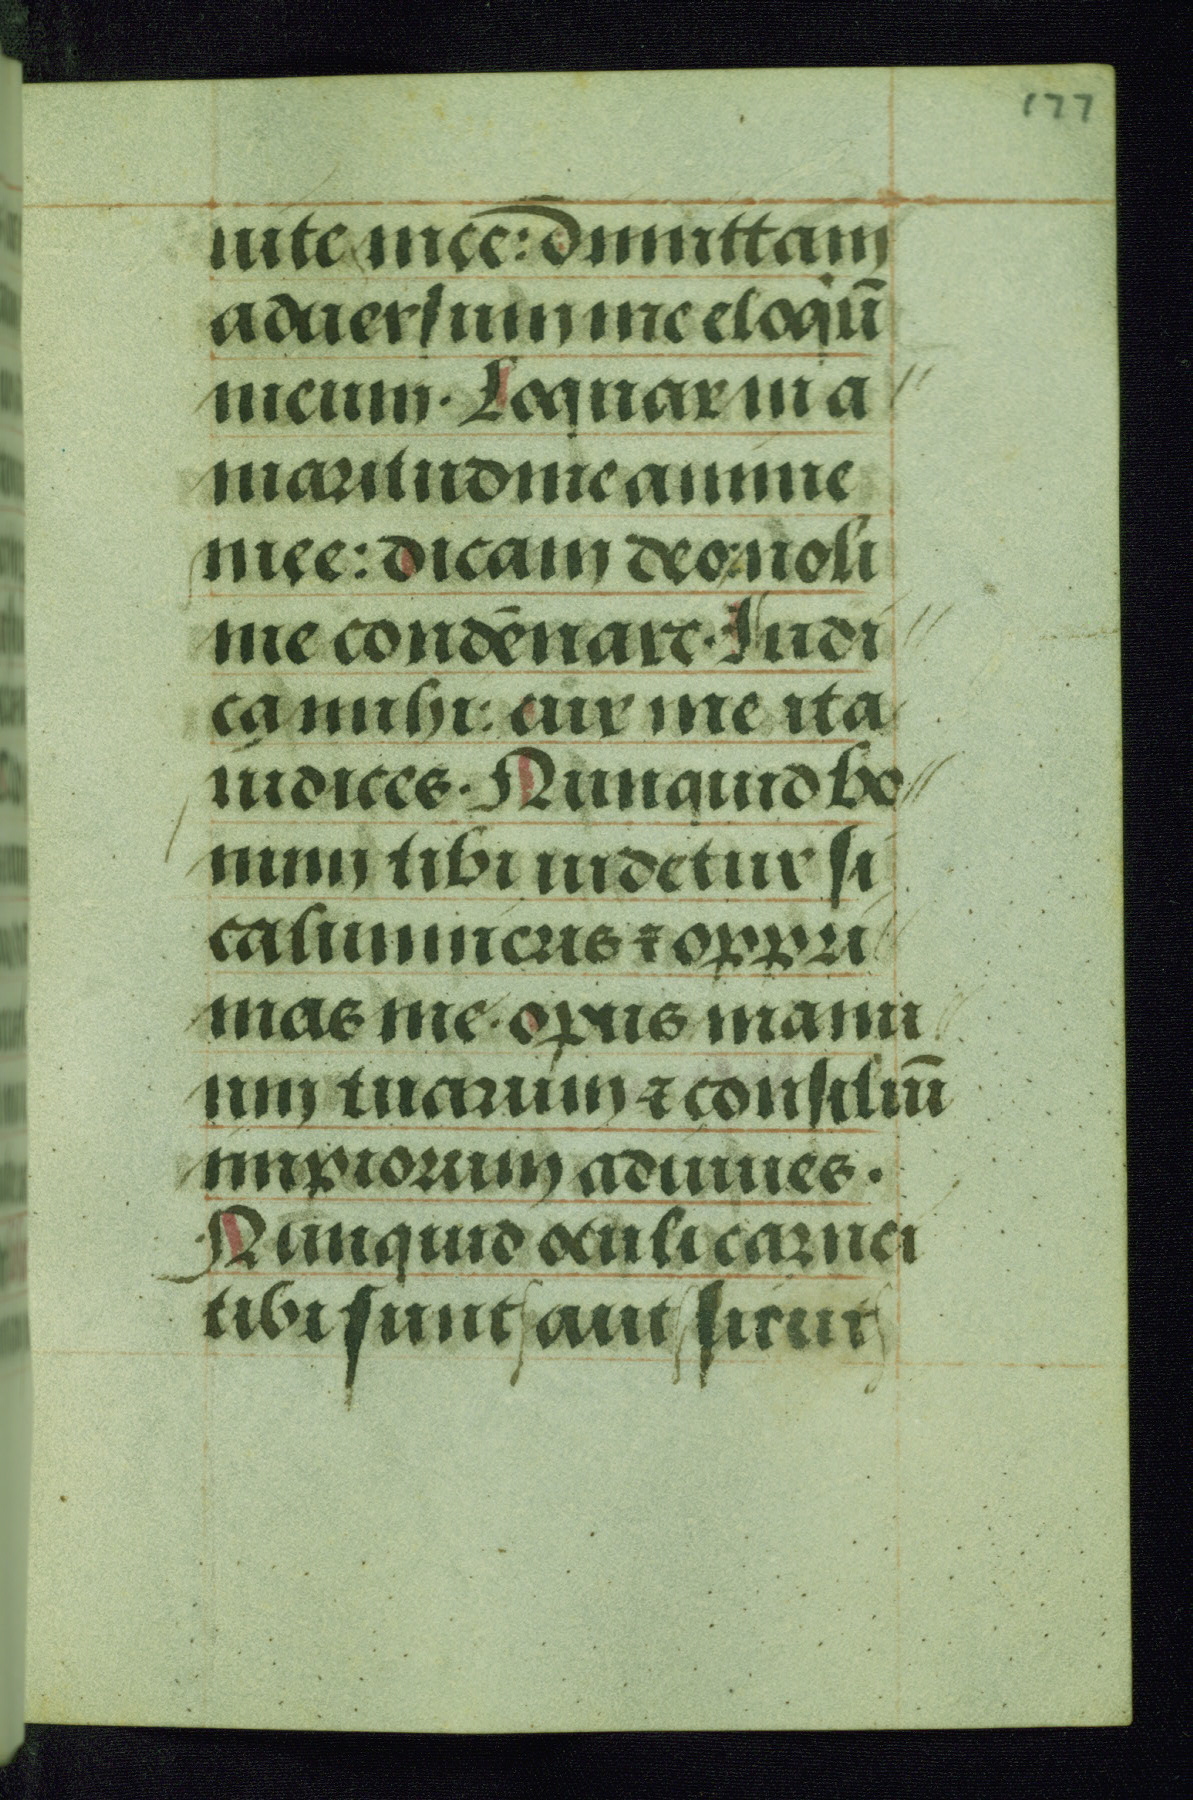 177
uite męę: dimittam
aduersum me eloqiū
meum. Loquar in a
maritudine anime
męe: dicam deo: noli
me condēnare. Iudi
ca michi: cur me ita
iudices. Nunquid bo
num tibi uidetur si
calumnieris ⁊ oppri
mas me. opus manu
um tuarum ⁊ consiliū
impiorum adiuues.
Nunquid oculi carnei
tibi sunt aut sicut